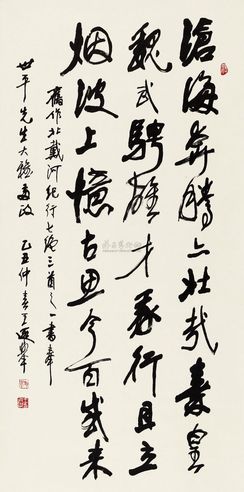 滄海奔騰亦壯哉秦皇
魏武騁雄才我行且立
烟波上憶古思今百感来
舊作北戴河紀行七絕三首之一書奉
世平先生大雅政 乙丑仲春王遐舉